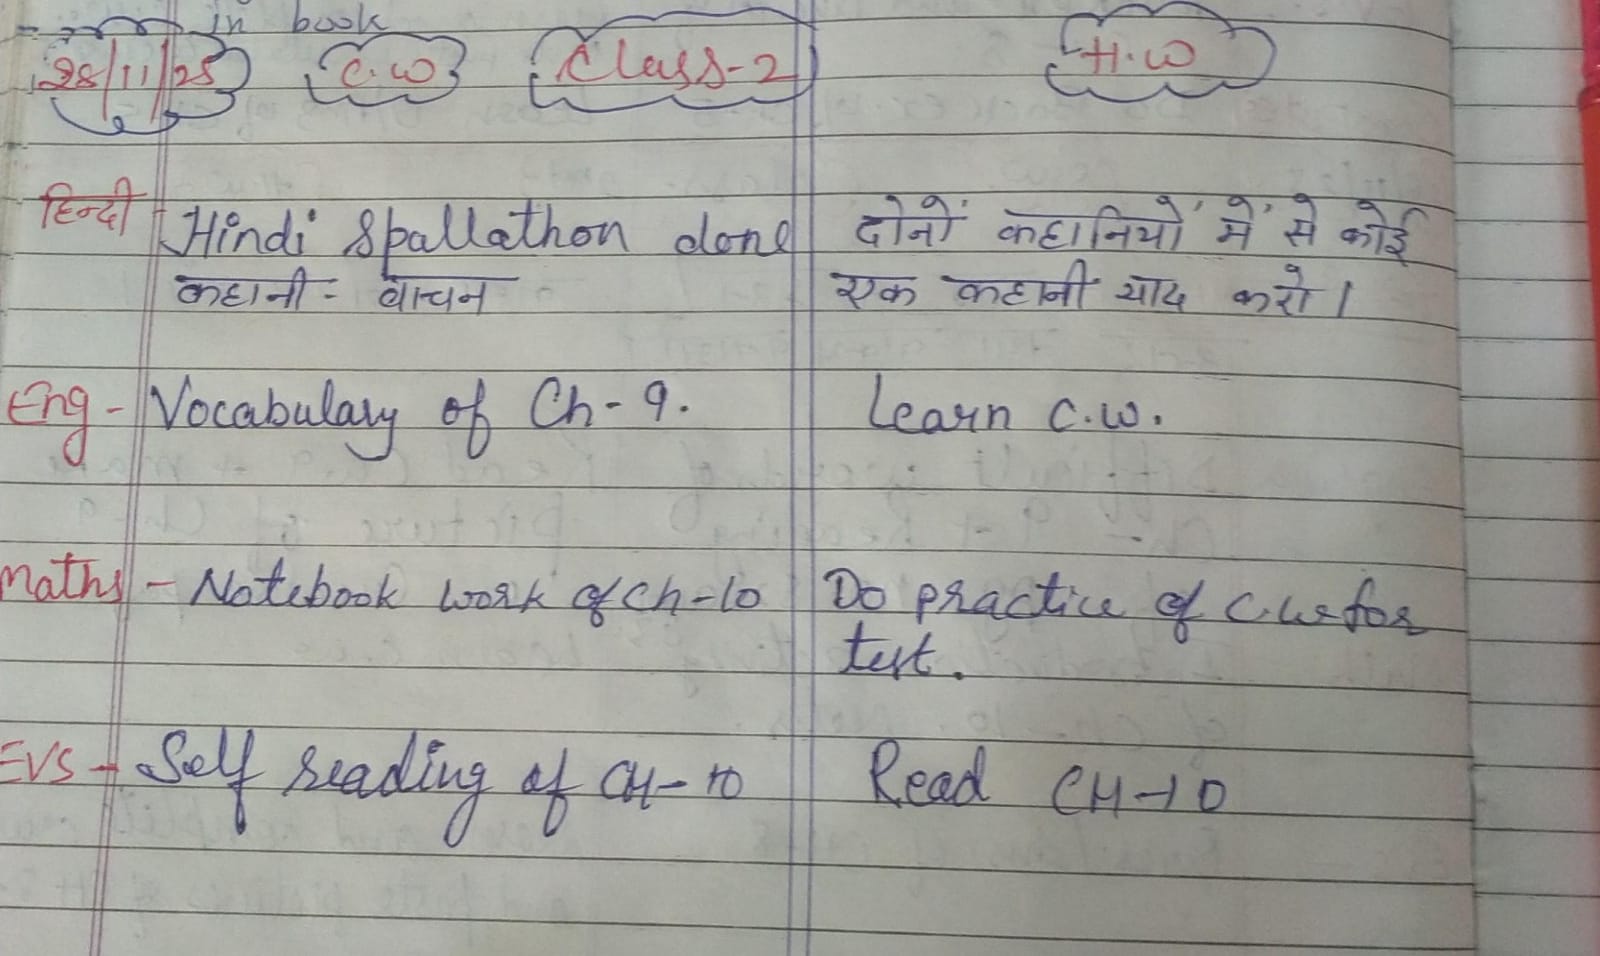 in book
28/11/25 C.W Class-2 H.W
हिन्दी Hindi Spallathon done दोनों कहानियों में से कोई
कहानी - वाचन एक कहानी याद करो।
Eng - Vocabulary of Ch-9. Learn C.W.
Maths - Notebook work of Ch-10 Do practice of C.W for
test.
EVS - Self reading of CH-10 Read CH-10